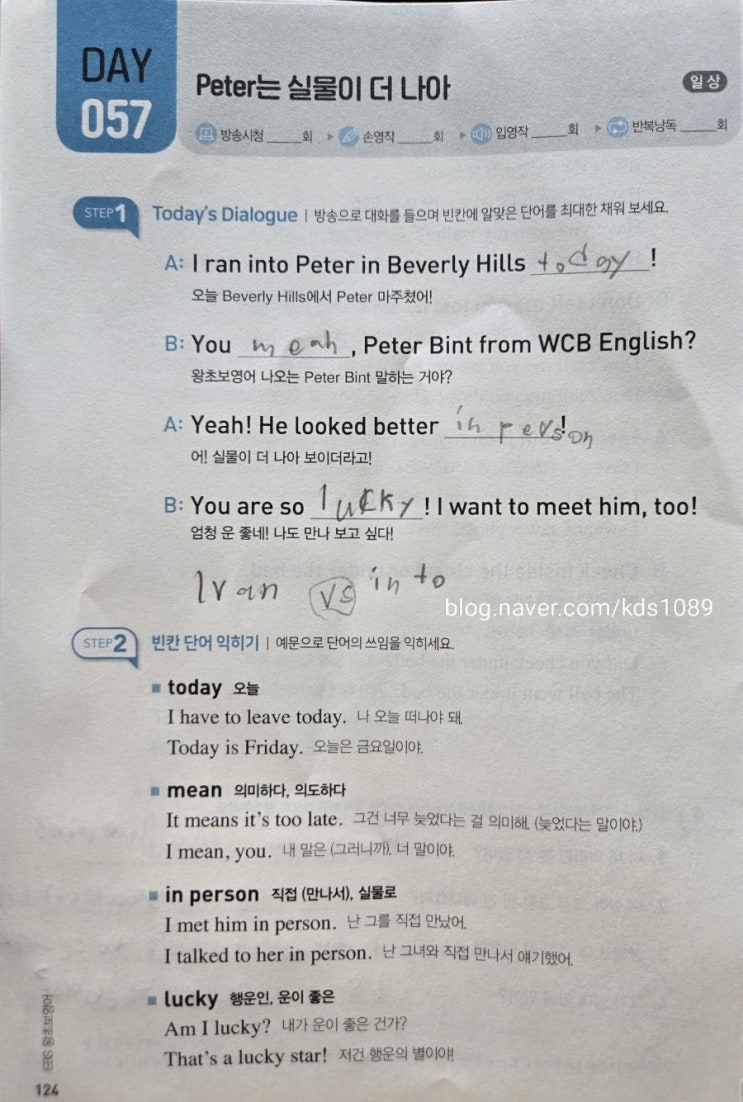 DAY
057
Peter는 실물이 더 나아
일상
방송시청 _____회 ▶ 손영작 _____회 ▶ 입영작 _____회 ▶ 반복낭독 _____회
STEP1 Today's Dialogue | 방송으로 대화를 들으며 빈칸에 알맞은 단어를 최대한 채워 보세요.
A: I ran into Peter in Beverly Hills today!
오늘 Beverly Hills에서 Peter 마주쳤어!
B: You mean, Peter Bint from WCB English?
왕초보영어 나오는 Peter Bint 말하는 거야?
A: Yeah! He looked better in person!
어! 실물이 더 나아 보이더라고!
B: You are so lucky! I want to meet him, too!
엄청 운 좋네! 나도 만나 보고 싶다!
I ran vs into
blog.naver.com/kds1089
STEP2 빈칸 단어 익히기 | 예문으로 단어의 쓰임을 익히세요.
today 오늘
I have to leave today. 나 오늘 떠나야 돼.
Today is Friday. 오늘은 금요일이야.
mean 의미하다, 의도하다
It means it's too late. 그건 너무 늦었다는 걸 의미해. (늦었다는 말이야.)
I mean, you. 내 말은 (그러니까), 너 말이야.
in person 직접 (만나서), 실물로
I met him in person. 난 그를 직접 만났어.
I talked to her in person. 난 그녀와 직접 만나서 얘기했어.
lucky 행운인, 운이 좋은
Am I lucky? 내가 운이 좋은 건가?
That's a lucky star! 저건 행운의 별이야!
EBS 왕초보영어
124